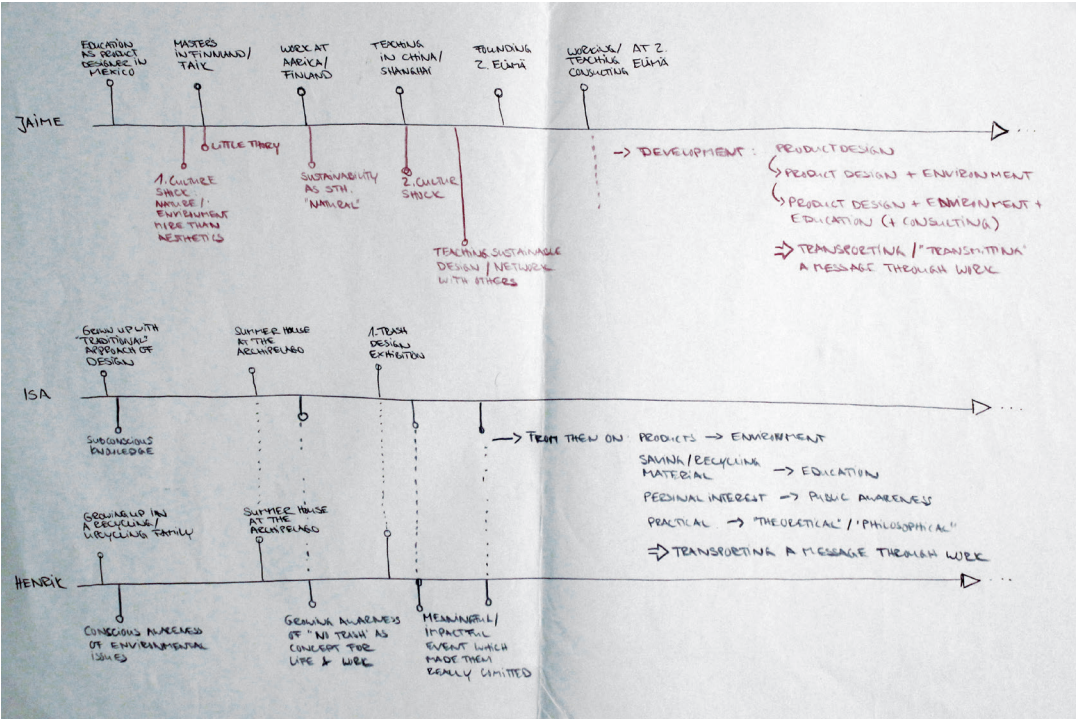 EDUCATION
AS PRODUCT
DESIGNER IN
MEXICO
MASTERS
IN FINNLAND/
TAIK
WORK AT
AARIKA/
FINLAND
TEACHING
IN CHINA/
SHANGHAI
FOUNDING
2. ELÄMÄ
WORKING/ AT 2.
TEACHING ELÄMÄ
CONSULTING
JAIME
LITTLE THORY
1. CULTURE
SHOCK:
NATURE/
ENVIRONMENT
MORE THAN
AESTHETICS
SUSTAINABILITY
AS STH.
"NATURAL"
2. CULTURE
SHOCK
TEACHING SUSTAINABLE
DESIGN / NETWORK
WITH OTHERS
→ DEVELOPMENT: PRODUCT DESIGN
PRODUCT DESIGN + ENVIRONMENT
PRODUCT DESIGN + ENVIRONMENT +
EDUCATION (+ CONSULTING)
⇒ TRANSPORTING / "TRANSMITTING"
A MESSAGE THROUGH WORK
GROWN UP WITH
"TRADITIONAL"
APPROACH OF
DESIGN
SUMMER HOUSE
AT THE
ARCHIPELAGO
1. TRASH
DESIGN
EXHIBITION
ISA
SUBCONSCIOUS
KNOWLEDGE
→ FROM THEN ON: PRODUCTS → ENVIRONMENT
SAVING/RECYCLING
MATERIAL → EDUCATION
PERSONAL INTEREST → PUBLIC AWARENESS
PRACTICAL → "THEORETICAL"/"PHILOSOPHICAL"
⇒ TRANSPORTING A MESSAGE THROUGH WORK
GROWING UP IN
A RECYCLING/
UPCYCLING FAMILY
SUMMER HOUSE
AT THE
ARCHIPELAGO
HENRIK
CONSCIOUS AWARENESS
OF ENVIRONMENTAL
ISSUES
GROWING AWARNESS
OF "NO TRASH" AS
CONCEPT FOR
LIFE & WORK
MEANINGFUL/
IMPACTFUL
EVENT WHICH
MADE THEM
REALLY COMITTED